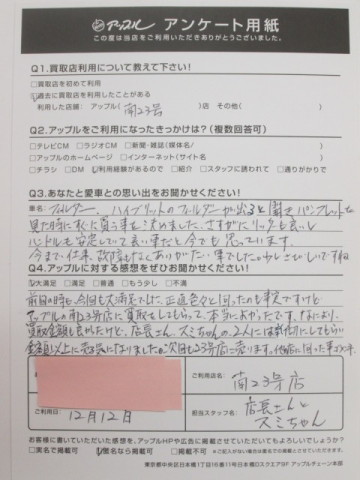 アップル アンケート用紙
この度は当店をご利用いただきありがとうございました。
Q1.買取店利用について教えて下さい!
□買取店を初めて利用
☑過去に買取店を利用したことがある
利用した店舗: アップル( 南23号 )店 その他( )
Q2.アップルをご利用になったきっかけは?(複数回答可)
□テレビCM □ラジオCM □新聞・雑誌(媒体名/ )
□アップルのホームページ □インターネット(サイト名 )
□チラシ □DM ☑利用経験があるので □紹介 □スタッフに誘われて □通りがかりで
Q3.あなたと愛車との思い出をお聞かせください!
車名: フィルダー、ハイブリットのフィルダーが出ると聞きパンフレットを
見た時に次に買う車を決めました。さすがにリッターも良いし
ハンドルも安定していて良い車だと今でも思っています。
今まで仕事、故障もなくありがたい車でしたの少しさびしいですね
Q4.アップルに対する感想をぜひお聞かせください!
☑大満足 □満足 □普通 □もう少し □不満
前回の時も今回も大満足でした、正直色々と回ったのも事実ですけど
アップルの南23号店に買取をしてもらって、本当に良かったです。なにより
買取金額も良かったけど、店長さん、スミちゃんの2人には
金額以上に 次回も23号店に売ります。
ご利用店名: 南23号店
ご利用日: 12月12日
担当スタッフ名: 店長さんと
スミちゃん
お客様に書いていただいた感想を、アップルHPや広告に掲載させていただいてもよろしいでしょうか?
□実名で掲載可 ☑匿名なら掲載可 □掲載不可
※ご記入がない場合は匿名での掲載とさせていただきます。
東京都中央区日本橋1丁目16番11号日本橋Dスクエア9F アップルチェーン本部